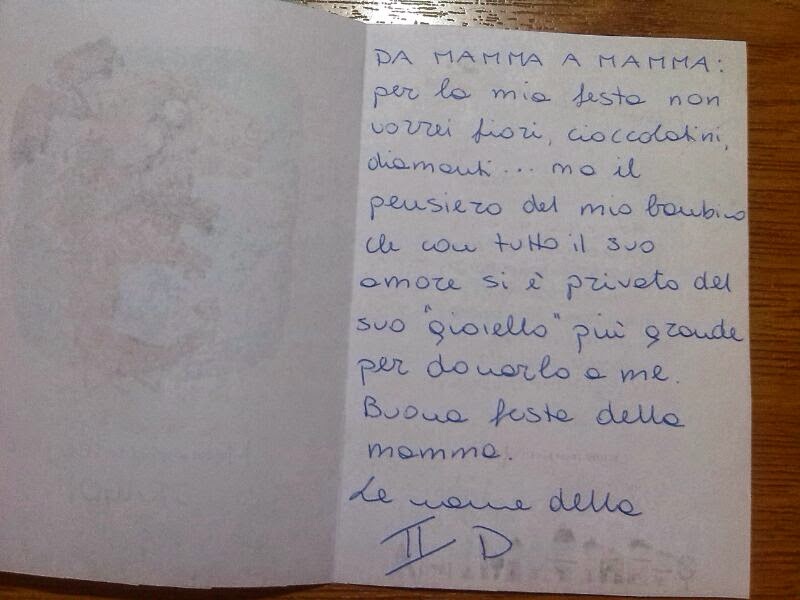 DA MAMMA A MAMMA:
per la mia festa non
vorrei fiori, cioccolatini,
diamanti... ma il
pensiero del mio bambino
che con tutto il suo
amore si è privato del
suo "gioiello" più grande
per donarlo a me.
Buona festa della
mamma.
Le mamme della
II D